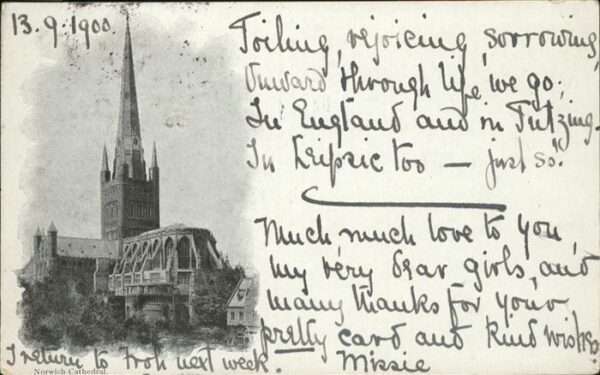 13.9.1900.
Toiling, rejoicing, sorrowing,
Onward through life, we go;
In England and in Tutzing.
In Leipsic too — just so."
Much, much love to you,
my very dear girls, and
many thanks for your
pretty card and kind wishes.
Missie
I return to Froh next week.
Norwich Cathedral.